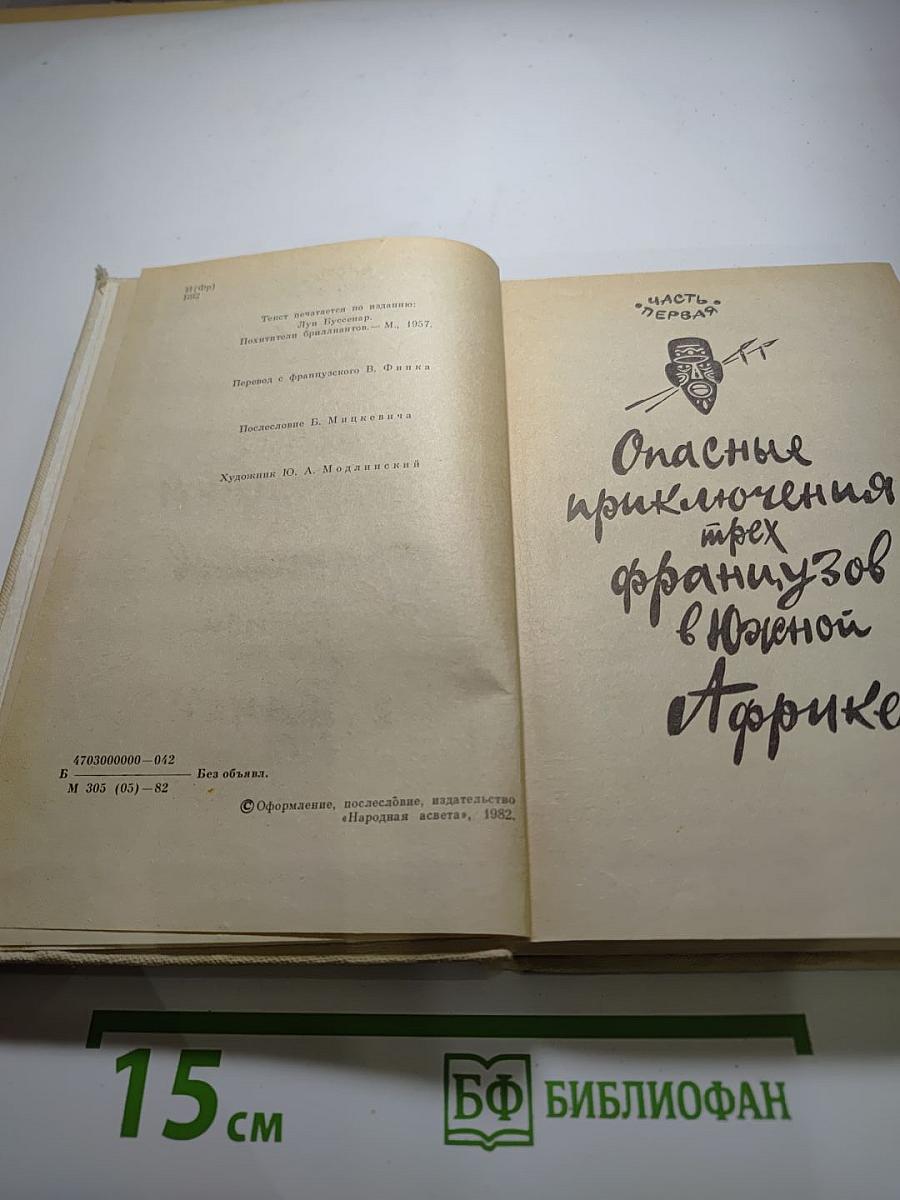 И(Фр)
Б92
Текст печатается по изданию:
Луи Буссенар.
Похитители бриллиантов.— М., 1957.
Перевод с французского В. Финка
Послесловие Б. Мицкевича
Художник Ю. А. Модлинский
4703000000—042
Б ——— Без объявл.
М 305 (05)—82
© Оформление, послесловие, издательство
«Народная асвета», 1982.
ЧАСТЬ
ПЕРВАЯ
Опасные
приключения
трех
французов
в Южной
Африке
15 см
БФ БИБЛИОФАН